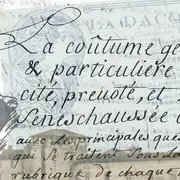 DACQ
La coûtume ge
& particuliere
cité, prevoté, et
Seneschaussée
avec les principales ques
qui se traitent sous la
rubrique de chaque